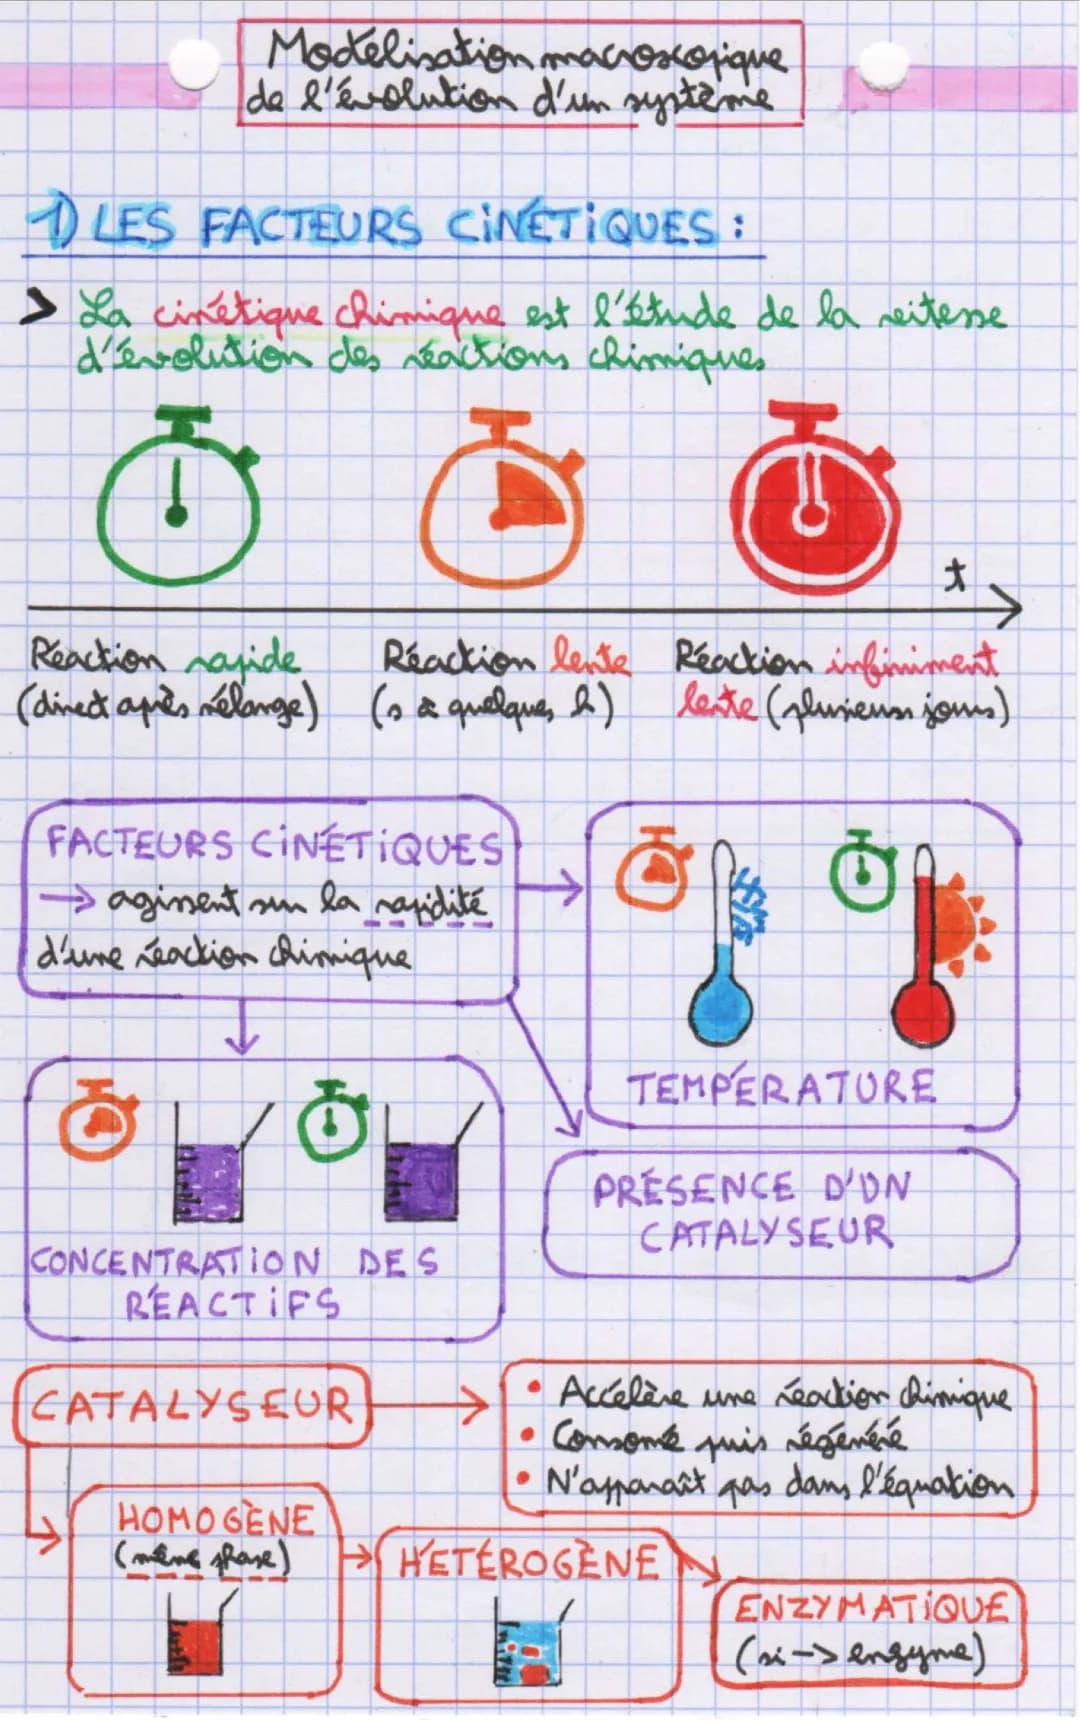 Modélisation macroscopique
de l'évolution d'un système
1) LES FACTEURS CINÉTIQUES :
> La cinétique chimique est l'étude de la vitesse
d'évolution des réactions chimiques
t
Réaction rapide
(direct après mélange)
Réaction lente
(s à quelques h)
Réaction infiniment
lente (plusieurs jours)
FACTEURS CINÉTIQUES
→ agissent sur la rapidité
d'une réaction chimique
TEMPÉRATURE
CONCENTRATION DES
RÉACTIFS
PRÉSENCE D'UN
CATALYSEUR
CATALYSEUR
• Accélère une réaction chimique
• Consomé puis régénéré
• N'apparaît pas dans l'équation
HOMOGÈNE
(même phase)
HÉTÉROGÈNE
ENZYMATIQUE
(si -> enzyme)